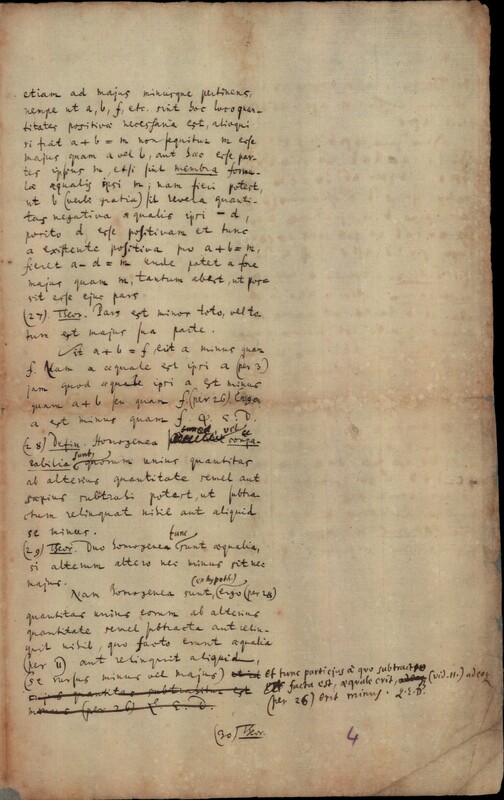 etiam ad majus minusque pertinens,
nempe ut a, b, f, etc. sint hoc loco quan-
titates positivæ necessaria est, alioqui
si fiat a + b = m non sequitur m esse
majus, quam a vel b, aut hæc esse par-
tes ipsius m, etsi sint membra formu-
læ æqualis ipsi m; nam fieri potest,
ut b (verbi gratia) sit revera quanti-
tas negativa æqualis ipsi - d,
posito d, esse positivam et tunc
a existente positiva pro a + b = m,
fieret a - d = m unde patet a fore
majus quam m, tantum abest, ut pos-
sit esse ejus pars.
(27) Theor. Pars est minor toto, vel to-
tum est majus sua parte.
Sit a + b = f erit a minus quam
f. Nam a æquale est ipsi a (per 3)
jam quod æquale ipsi a est minus
quam a + b seu quam f. (per 26) Ergo
a est minus quam f. Q. E. D.
(28) Defin. Homogenea vel compa-
rabilia sunt, quorum unius quantitas
ab alterius quantitate semel aut
sæpius subtrahi potest, ut subtra-
ctum relinquat nihil aut aliquid
se minus.
(29) Theor. Duo homogenea tunc sunt æqualia,
si alterum altero nec minus sit nec
majus.
Nam homogenea sunt, (ex hypoth.) Ergo (per 28)
quantitas unius eorum ab alterius
quantitate semel subtracta aut relin-
quit nihil, quo facto erunt æqualia
(per 11) aut relinquit aliquid,
(se rursus minus vel majus) et tunc parti ejus a quo subtractio
facta est, æquale erit, (vid. 11.) adeoq
ejus quantitas subtrahibilis est (per 26) erit minus. Q.E.D.
minus (per 26) Q. E. D.
(30) Theor.
4